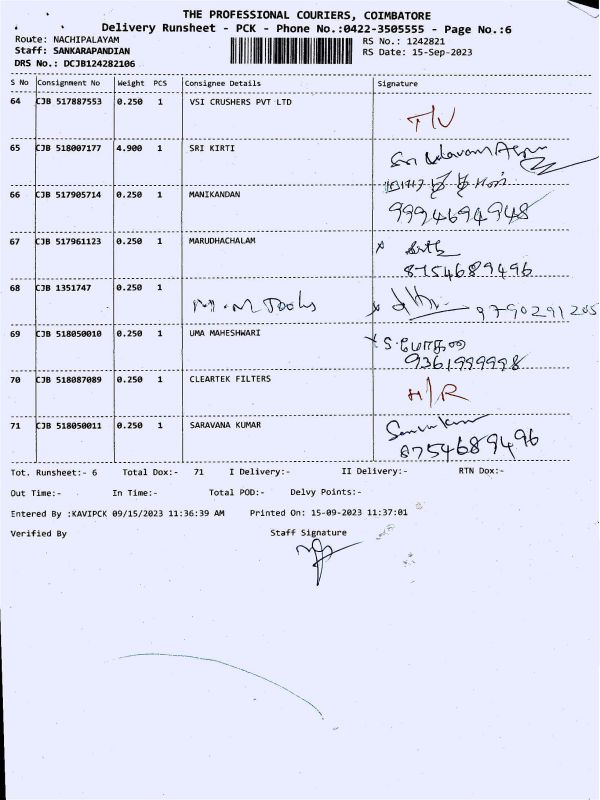 THE PROFESSIONAL COURIERS, COIMBATORE
Delivery Runsheet - PCK - Phone No.:0422-3505555 - Page No.:6
Route: NACHIPALAYAM RS No.: 1242821
Staff: SANKARAPANDIAN RS Date: 15-Sep-2023
DRS No.: DCJB124282106
S No Consignment No Weight PCS Consignee Details Signature
64 CJB 517887553 0.250 1 VSI CRUSHERS PVT LTD
65 CJB 518007177 4.900 1 SRI KIRTI
66 CJB 517905714 0.250 1 MANIKANDAN
9994694948
67 CJB 517961123 0.250 1 MARUDHACHALAM
8754689496
68 CJB 1351747 0.250 1 M.M Tools 9790291205
69 CJB 518050010 0.250 1 UMA MAHESHWARI
9361999998
70 CJB 518087089 0.250 1 CLEARTEK FILTERS H/R
71 CJB 518050011 0.250 1 SARAVANA KUMAR
8754689496
Tot. Runsheet:- 6 Total Dox:- 71 I Delivery:- II Delivery:- RTN Dox:-
Out Time:- In Time:- Total POD:- Delvy Points:-
Entered By :KAVIPCK 09/15/2023 11:36:39 AM Printed On: 15-09-2023 11:37:01
Verified By Staff Signature